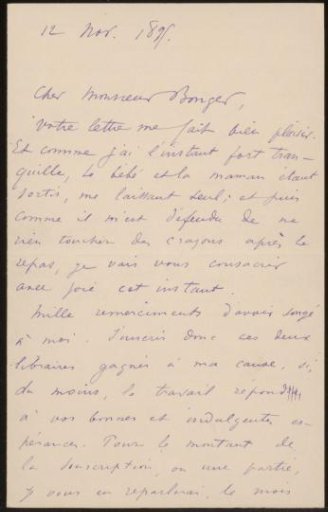 12 Nov. 1895.
Cher Monsieur Bonger,
Votre lettre me fait bien plaisir.
Et comme j'ai l'instant fort tran-
quille, le bébé et la maman étant
sortis, me laissant seul; et puis
comme il m'est défendu de ne
rien toucher des crayons après le
repas, je vais vous consacrer
avec joie cet instant.
Mille remerciments d'avoir songé
à moi. J'inscris donc ces deux
libraires gagnés à ma cause, si,
du moins, le travail répond
à vos bonnes et indulgentes es-
pérances. Pour le montant de
la souscription, ou une partie,
y vous en reparlerai, le mois